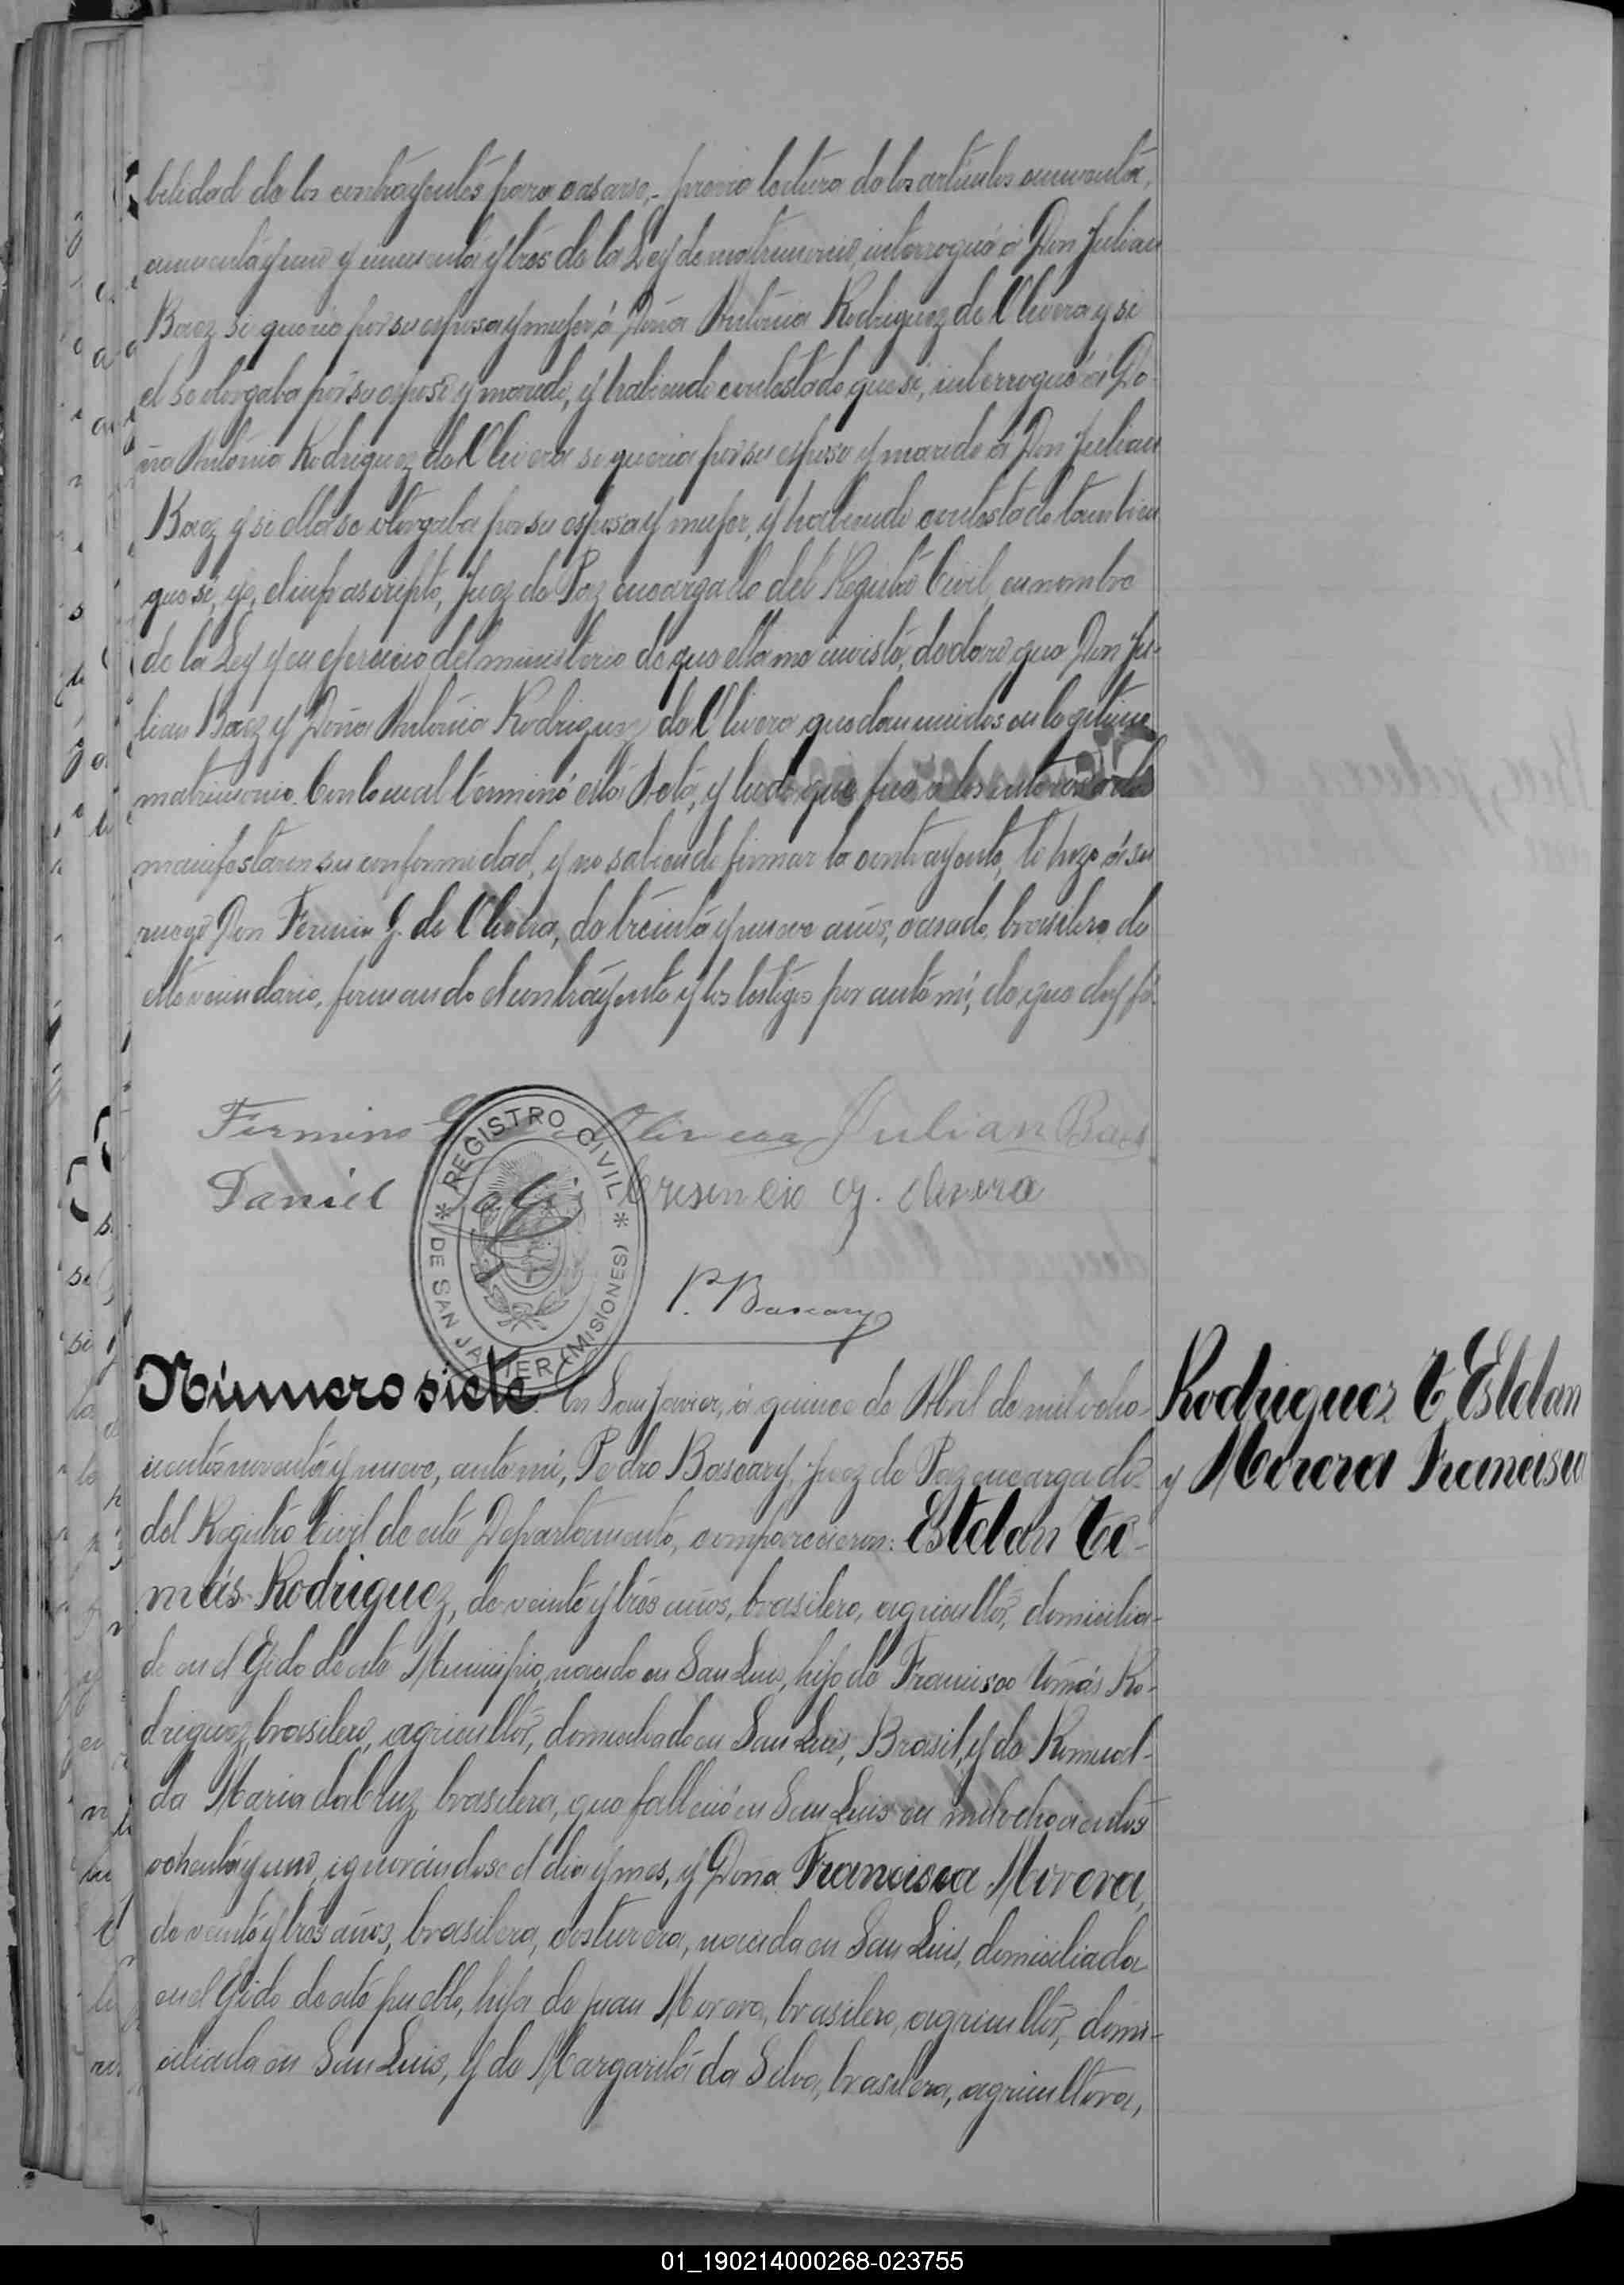 bilidad de los contrayentes para casarse,- previa lectura de los artículos cincuenta,
cincuenta y uno y cincuenta y tres de la Ley de matrimonio, interrogué á Don Julian
Baez si queria por su esposa y mujer á Doña Antonia Rodriguez de Olivera y si
el se otorgaba por su esposo y marido, y habiendo contestado que si, interrogué á Do-
ña Antonia Rodriguez de Olivera si queria por su esposo y marido á Don Julian
Baez y si ella se otorgaba por su esposa y mujer, y habiendo contestado tambien
que si, yo, el infrascripto, Juez de Paz encargado del Registro Civil, en nombre
de la Ley y en ejercicio del ministerio de que ella me inviste, declaro que Don Ju-
lian Baez y Doña Antonia Rodriguez de Olivera quedan unidos en legítimo
matrimonio. Con lo cual terminó esta Acta, y leida que fué á los interesados
manifestaron su conformidad, y no sabiendo firmar la contrayente, lo hizo á su
ruego Don Fermin G. de Oliveira, de treinta y nueve años, casado, brasilero, de
este vecindario, firmando el contrayente y los testigos por ante mi, de que doy fé.
Firmino G. Oliveira Julian Baes
Daniel Cresencio G. Olivera
REGISTRO CIVIL
* DE SAN JAVIER (MISIONES) *
P. Bascary
Número siete. En San Javier, á quince de Abril de mil ocho-
cientos noventa y nueve, ante mi, Pedro Bascary, Juez de Paz encargado
del Registro Civil de este Departamento, comparecieron: Esteban To-
más Rodriguez, de veinte y tres años, brasilero, agricultor, domicilia-
do en el Egido de este Municipio, nacido en San Luis, hijo de Francisco Tomás Ro-
driguez, brasilero, agricultor, domiciliado en San Luis, Brasil, y de Romual-
da Maria da Cruz, brasilera, que falleció en San Luis en mil ochocientos
ochenta y uno, ignorándose el dia y mes, y Doña Francisca Morera,
de veinte y tres años, brasilera, costurera, nacida en San Luis, domiciliada
en el Egido de este pueblo, hija de Juan Morera, brasilero, agricultor, domi-
ciliado en San Luis, y de Margarita da Selva, brasilera, agricultora,
Rodriguez T. Esteban
y Morera Francisca
01_190214000268-023755